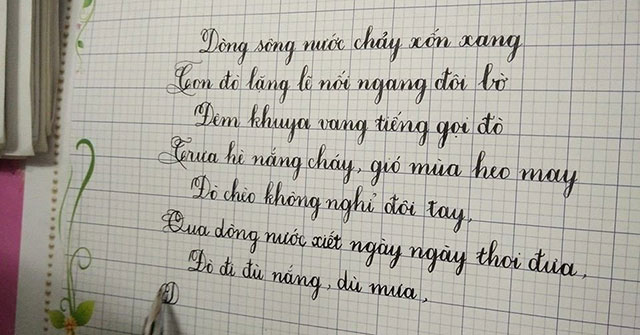 Dòng sông nước chảy xốn xang
Con đò lặng lẽ nối ngang đôi bờ
Đêm khuya vang tiếng gọi đò
Trưa hè nắng cháy, gió mùa heo may
Đò chèo không nghỉ đôi tay,
Qua dòng nước xiết ngày ngày thoi đưa,
Đò đi đù nắng, dù mưa,
Đ